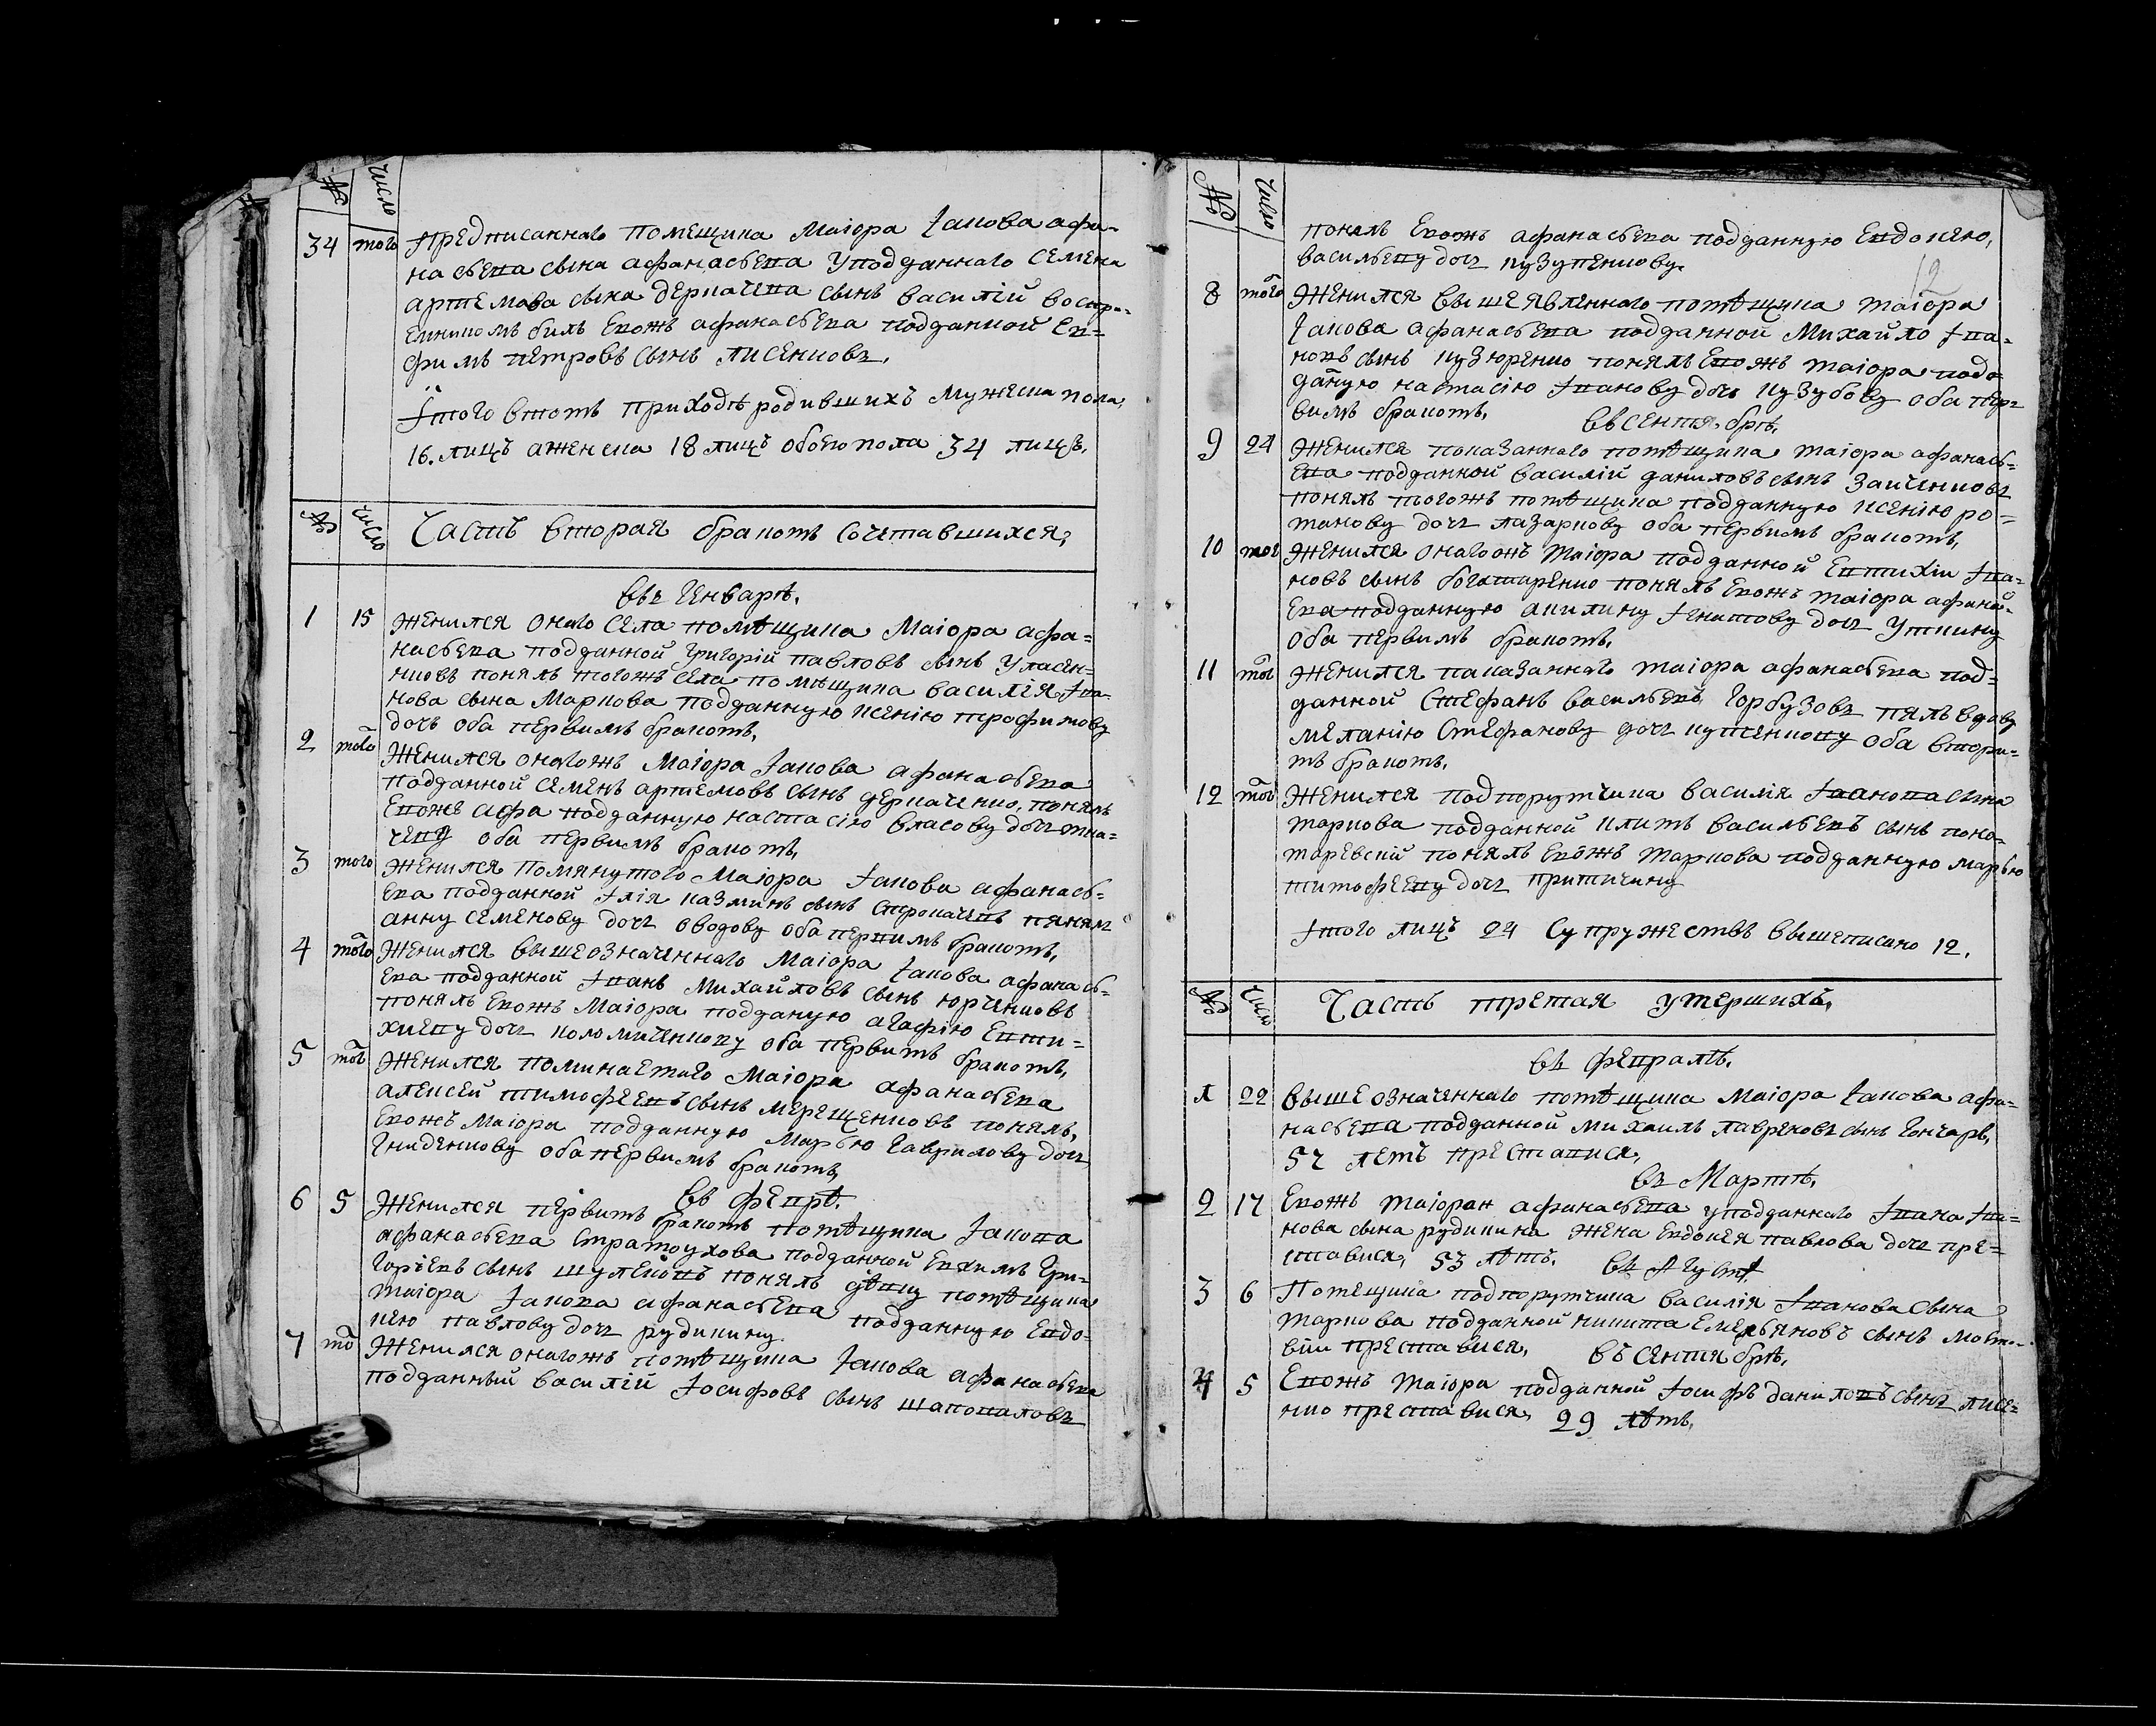 № число
34 того предписаннаго помещика Маіора Іакова афа-
насьева сына афанасьева у подданнаго Семена
артемова сына деркачева сынъ василій воспри-
емникомъ билъ евожъ афанасьева подданной Ев-
фимъ петровъ сынъ лисенковъ,
Ітого втомъ приходѣ родившихъ мужеска пола,
16. лицъ а женска 18 лицъ обоего пола 34 лицъ,
№ число Часть вторая бракомъ сочетавшихся,
въ Генварѣ,
1 15 Женился онаго села помѣщика Маіора афа=
насьева подданной григорій павловъ сынъ уласен-
ковъ понялъ тогожъ села помѣщика василія Іва-
нова сына Маркова подданную ксенію трофимову
дочь оба первимъ бракомъ,
2 того Женился оногожъ Маіора Іакова афанасьева
подданной семенъ артемовъ сынъ деркаченко, понялъ
евожъ афа подданную настасію власову дочь тка-
чеву оба первимъ бракомъ,
3 того Женился помянутого Маіора Іакова афанась=
ева подданной Ілія казминъ сынъ Строкачевъ понялъ
анну семенову дочь оводову оба первимъ бракомъ,
4 того Женился вышеозначеннаго Маіора Іакова афанась=
ева подданной Іванъ Михайловъ сынъ юрченковъ
понялъ евожъ Маіора подданую агафію Евти=
хиеву дочь коломиченкову оба первимъ бракомъ,
5 того Женился поминаемаго Маіора афанасьева
алексей тимофеевъ сынъ мерещенковъ понялъ,
евожъ Маіора подданную Марью гаврилову дочь
гниденкову оба первимъ бракомъ,
въ февр:
6 5 Женился первимъ бракомъ помѣщика Іакова
афанасьева Стратоухова подданной Евхимъ гри=
горіевъ сынъ шулековъ понялъ дѣвку помѣщика
маіора Іакова афанасьева подданную Евдо=
кею павлову дочь рудикину
7 то Женился оногожъ помѣщика Іакова афанасьева
подданный василій Іосифовъ сынъ шаповаловъ
№ число
понялъ евожъ афанасьева подданную Евдокею,
васильеву дочь кузупенкову
12
8 того Женился вышеявленнаго помѣщика маіора
Іакова афанасьева подданной Михайло Іва=
новъ сынъ кузюренко понялъ евожъ маіора подо
даную настасію Іванову дочь кузубову оба пер=
вимъ бракомъ,
въ сентябрѣ,
9 24 Женился показанного помѣщика маіора афанась=
ева подданной василій даниловъ сынъ Заиченковъ
понялъ тогожъ помѣщика подданную ксенію ро=
манову дочь лазаркову оба первимъ бракомъ,
10 того Женился оногожъ маіора подданной Евтихіи Іва=
новъ сынъ богатиренко понялъ евожъ маіора афана-
ева подданную акилину Ігнатову дочь уткину
оба первимъ бракомъ,
11 того Женился паказаннаго маіора афанасьева под=
данной Стефанъ васильевъ горбузовъ пялъ вдову
меланію Стефанову дочь кутенкову оба втори-
мъ бракомъ,
12 того Женился подпорутчика василія Іванова сына
маркова подданной климъ васильевъ сынъ поно-
маревскій понялъ евожъ маркова подданную марью
тимофееву дочь критичину
Ітого лицъ 24 Супружествъ вышеписано 12.
№ число Часть третая умершихъ,
въ февралѣ,
1 22 вышеозначеннаго помѣщика Маіора Іакова афа=
насьева подданной михаилъ лавреновъ сынъ гончаръ,
57 летъ преставися,
въ Мартѣ,
2 17 Евожъ маіоран афанасьева у подданнаго Івана Іва=
нова сына рудикина жена евдокея павлова дочь пре=
ставися, 53 лѣтъ.
въ Августѣ
3 6 Помещика подпорутчика василія Іванова сына
маркова подданной никита Емельяновъ сынъ мокто-
вій преставися,
въ сентябрѣ,
4 5 Евожъ маіора подданной Іосифъ даниловъ сынъ лисе=
нко преставися, 29 лѣтъ,